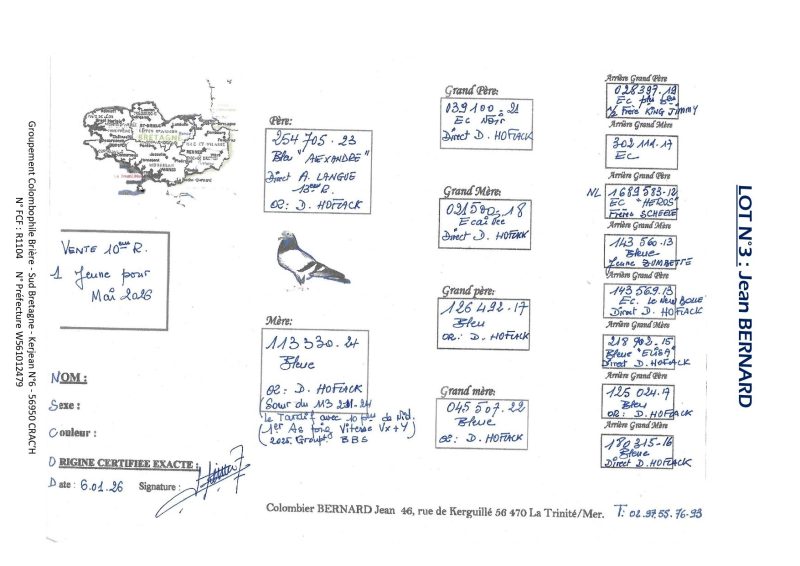 LOT N°3 : Jean BERNARD
Groupement Colombophile Brière - Sud Bretagne - Kerjean N°6 - 56950 CRAC'H
N° FCF : R1104 N° Préfecture W561012479
BRETAGNE
VENTE 10ème R.
1 Jeune pour
Mai 2026
NOM :
Sexe :
Couleur :
ORIGINE CERTIFIEE EXACTE :
Date : 6.01.26 Signature :
Père:
254705.23
Bleu "ALEXANDRE"
Direct A. LANGUE
OR: D. HOFLACK
Mère:
113330.21
Bleue
OR: D. HOFLACK
Soeur du M3
1er As Vitesse Vx+Y
2025. Group. BBS
Grand Père:
039100.21
EC Noir
Direct D. HOFLACK
Grand Mère:
021500.18
Ecaillée
Direct D. HOFLACK
Grand père:
126492.17
Bleu
OR: D. HOFLACK
Grand mère:
045507.22
Bleue
OR: D. HOFLACK
Arrière Grand Père
028397.19
1/2 Frère KING JIMMY
Arrière Grand Mère
302111.17
EC
Arrière Grand Père
NL 1689583-12
EC "HEROS"
Frères SCHEELE
Arrière Grand Mère
143560.13
Bleue
Arrière Grand Père
143569.13
Direct D. HOFLACK
Arrière Grand Mère
218903.15
Bleue "ELISA"
Direct D. HOFLACK
Arrière Grand Père
125024.17
Bleu
OR: D. HOFLACK
Arrière Grand Mère
180315-16
Bleue
Direct D. HOFLACK
Colombier BERNARD Jean 46, rue de Kerguillé 56 470 La Trinité/Mer. T: 02.97.55.76.93